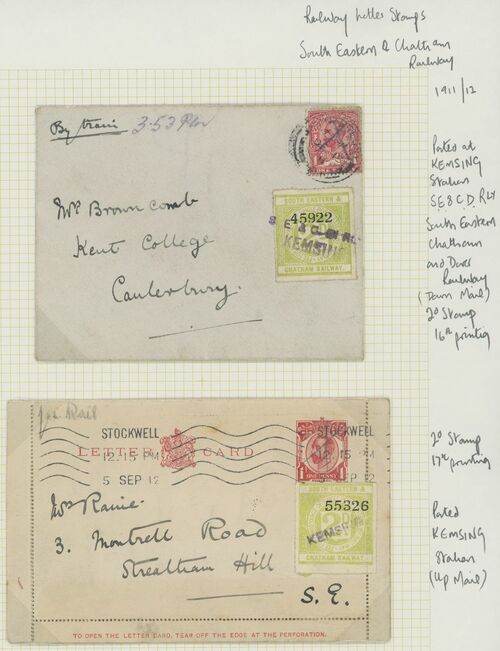 Railway Letter Stamps
South Eastern & Chatham
Railway
1911/12
By train 3.53 P
45922
SOUTH EASTERN &
CHATHAM RAILWAY.
KEMSING
Mr Browncomb
Kent College
Canterbury.
Posted at
KEMSING
Station
SE & C D. RLY
South Eastern
Chatham
and Dover
Railway
(Down Mail)
2D Stamp
16th printing
Rail
STOCKWELL
12.15 PM
5 SEP 12
LETTER CARD
STOCKWELL
12.15 PM
SEP 12
ONE PENNY
SOUTH EASTERN &
55326
2D
KEMSING
CHATHAM RAILWAY.
Mrs Raine.
3. Montrell Road
Streatham Hill
S.E.
TO OPEN THE LETTER CARD, TEAR OFF THE EDGE AT THE PERFORATION.
2D Stamp
17th printing
Posted
KEMSING
Station
(Up Mail)